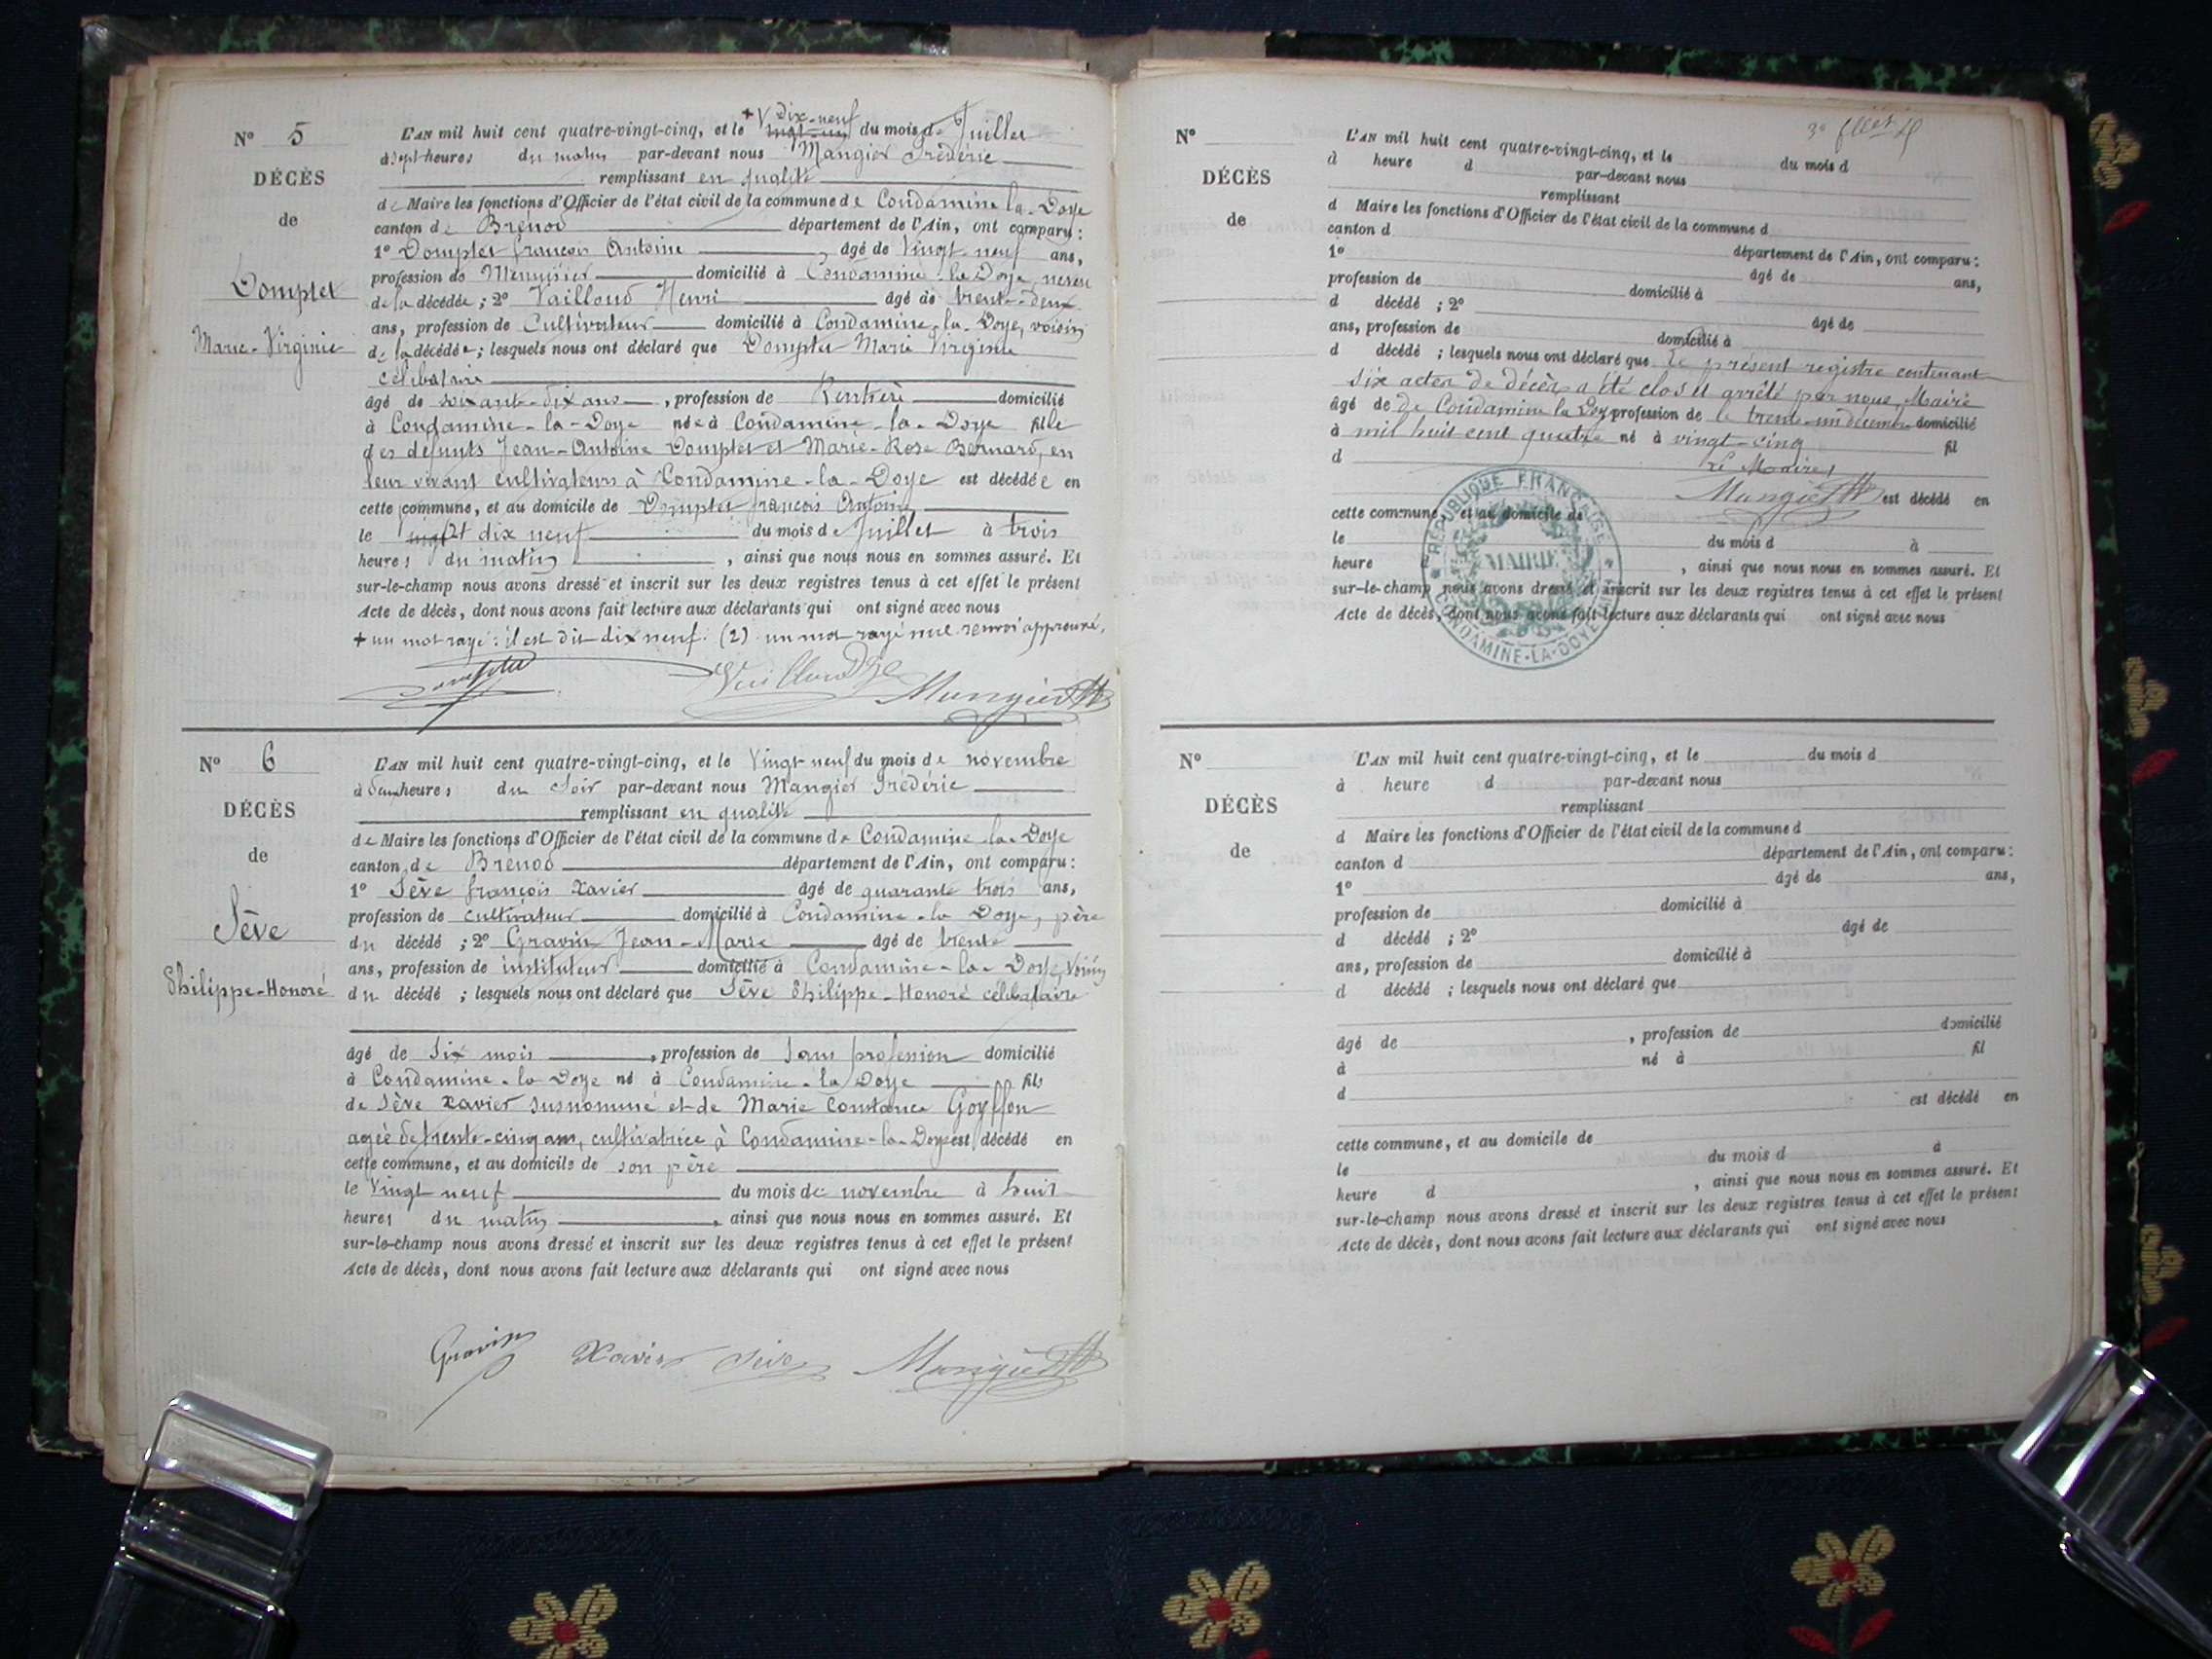 N° 5
DÉCÈS
de
Domplet
Marie-Virginie
L'AN mil huit cent quatre-vingt-cinq, et le + dix-neuf du mois de Juillet
à sept heures du matin par-devant nous Mangier Frédéric
remplissant en qualité
de Maire les fonctions d'Officier de l'état civil de la commune de Condamine-la-Doye
canton de Brénod département de l'Ain, ont comparu :
1° Domplet françois Antoine âgé de Vingt-neuf ans,
profession de domicilié à Condamine-la-Doye, neveu
de la décédée ; 2° Vailloud Henri âgé de trente-deux
ans, profession de Cultivateur domicilié à Condamine-la-Doye, voisin
de la décédée ; lesquels nous ont déclaré que Domplet Marie Virginie
célibataire
âgé de soixante-dix ans, profession de Rentière domicilié
à Condamine-la-Doye née à Condamine-la-Doye fille
des défunts Jean-Antoine Domplet et Marie-Rose Bernard, en
leur vivant cultivateurs à Condamine-la-Doye est décédée en
cette commune, et au domicile de Domplet françois Antoine
le dix neuf du mois de Juillet à trois
heures du matin, ainsi que nous nous en sommes assuré. Et
sur-le-champ nous avons dressé et inscrit sur les deux registres tenus à cet effet le présent
Acte de décès, dont nous avons fait lecture aux déclarants qui ont signé avec nous
+ un mot rayé : il est dit dix neuf. (2) un mot rayé nul renvoi approuvé.
Domplet Mangier
N° 6
DÉCÈS
de
Sève
Philippe-Honoré
L'AN mil huit cent quatre-vingt-cinq, et le Vingt-neuf du mois de novembre
à deux heures du Soir par-devant nous Mangier Frédéric
remplissant en qualité
de Maire les fonctions d'Officier de l'état civil de la commune de Condamine-la-Doye
canton de Brénod département de l'Ain, ont comparu :
1° Sève françois Xavier âgé de quarante trois ans,
profession de cultivateur domicilié à Condamine-la Doye, père
du décédé ; 2° Gravin Jean-Marie âgé de trente
ans, profession de instituteur domicilié à Condamine-la-Doye, Voisin
du décédé ; lesquels nous ont déclaré que Sève Philippe-Honoré célibataire
âgé de Six mois, profession de Sans profession domicilié
à Condamine-la Doye né à Condamine-la Doye fils
de Sève Xavier susnommé et de Marie Constance Goyffon
agée de trente-cinq ans, cultivatrice à Condamine-la-Doye est décédé en
cette commune, et au domicile de son père
le Vingt neuf du mois de novembre à huit
heures du matin, ainsi que nous nous en sommes assuré. Et
sur-le-champ nous avons dressé et inscrit sur les deux registres tenus à cet effet le présent
Acte de décès, dont nous avons fait lecture aux déclarants qui ont signé avec nous
Gravin Xavier Sève Mangier
N°
DÉCÈS
de
L'AN mil huit cent quatre-vingt-cinq, et le du mois d
à heure d par-devant nous
remplissant
d Maire les fonctions d'Officier de l'état civil de la commune d
canton d département de l'Ain, ont comparu :
1° âgé de ans,
profession de domicilié à
d décédé ; 2° âgé de
ans, profession de domicilié à
d décédé ; lesquels nous ont déclaré que Le présent registre contenant
six actes de décès a été clos et arrêté par nous, Maire
âgé de de Condamine la Doye profession de le trente-un décembre domicilié
à mil huit cent quatre né à vingt-cinq fil
d Le Maire,
Mangier est décédé en
cette commune, et au domicile de
le du mois d à
heure, ainsi que nous nous en sommes assuré. Et
sur-le-champ nous avons dressé et inscrit sur les deux registres tenus à cet effet le présent
Acte de décès, dont nous avons fait lecture aux déclarants qui ont signé avec nous
RÉPUBLIQUE FRANÇAISE
MAIRIE
CONDAMINE-LA-DOYE
N°
DÉCÈS
de
L'AN mil huit cent quatre-vingt-cinq, et le du mois d
à heure d par-devant nous
remplissant
d Maire les fonctions d'Officier de l'état civil de la commune d
canton d département de l'Ain, ont comparu :
1° âgé de ans,
profession de domicilié à
d décédé ; 2° âgé de
ans, profession de domicilié à
d décédé ; lesquels nous ont déclaré que
âgé de, profession de domicilié
à né à fil
d est décédé en
cette commune, et au domicile de
le du mois d à
heure d, ainsi que nous nous en sommes assuré. Et
sur-le-champ nous avons dressé et inscrit sur les deux registres tenus à cet effet le présent
Acte de décès, dont nous avons fait lecture aux déclarants qui ont signé avec nous